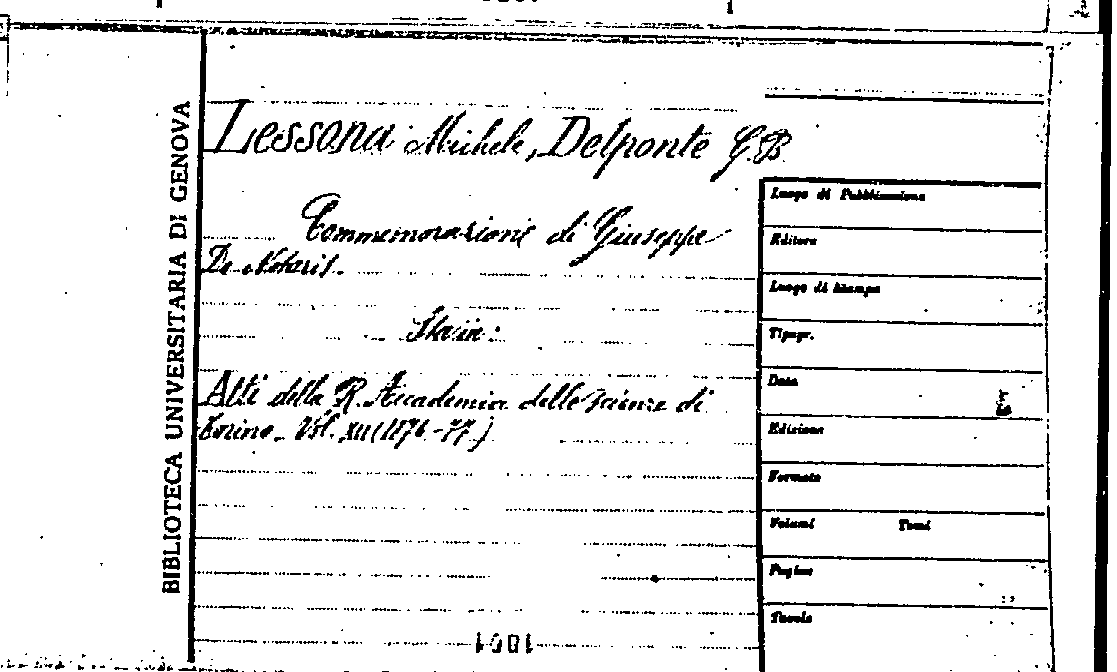 BIBLIOTECA UNIVERSITARIA DI GENOVA
Lessona Michele, Delponte G. B.
Commemorazione di Giuseppe
De Notaris.
Sta in:
Atti della R. Accademia delle scienze di
Torino. Vol. XII (1876-77)
Luogo di Pubblicazione
Editore
Luogo di Stampa
Tipogr.
Data
Edizione
Formato
Volumi Tomi
Pagine
Tavole